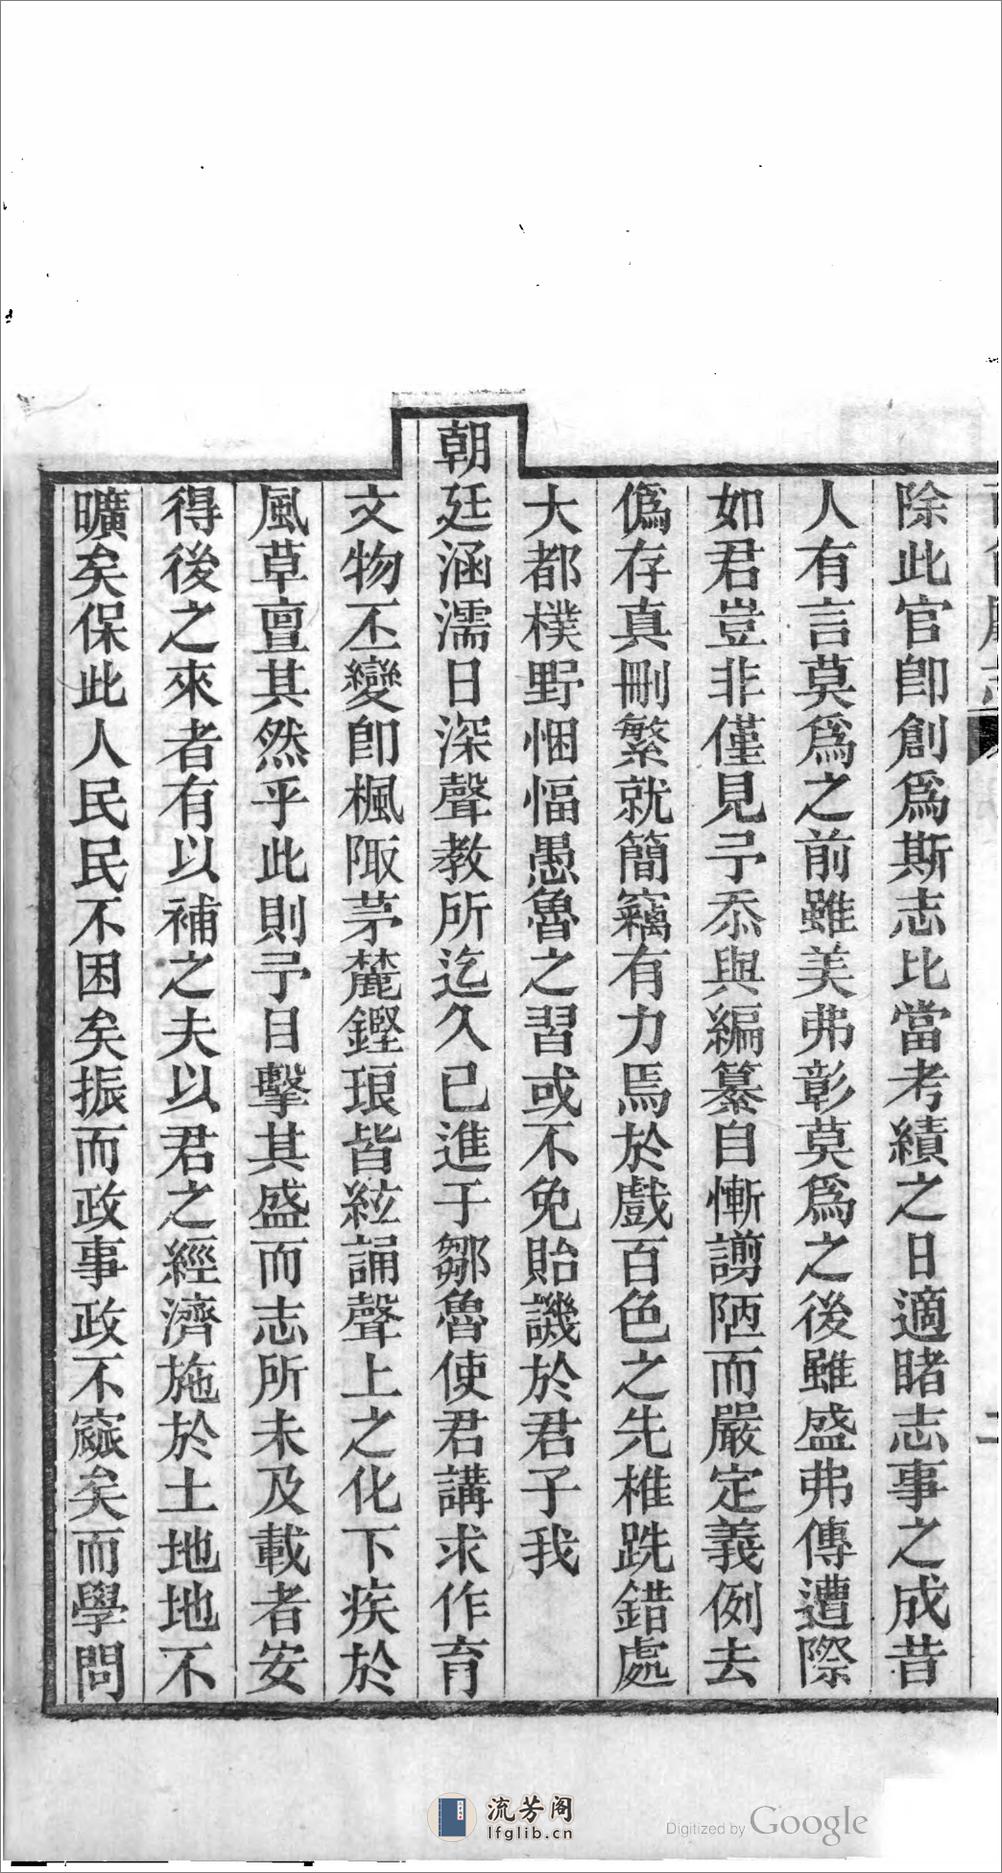 除此官卽創爲斯志比當考績之日適睹志事之成昔
人有言莫爲之前雖美弗彰莫爲之後雖盛弗傳遭際
如君豈非僅見予忝與編纂自慚謭陋而嚴定義例去
僞存眞刪繁就簡竊有力焉於戲百色之先椎跣錯處
大都樸野悃愊愚魯之習或不免貽譏於君子我
朝廷涵濡日深聲教所迄久已進于鄒魯使君講求作育
文物丕變卽楓陬茅麓鏗琅皆絃誦聲上之化下疾於
風草亶其然乎此則予目擊其盛而志所未及載者安
得後之來者有以補之夫以君之經濟施於土地地不
曠矣保此人民民不困矣振而政事政不窳矣而學問
流芳阁
lfglib.cn
Digitized by Google